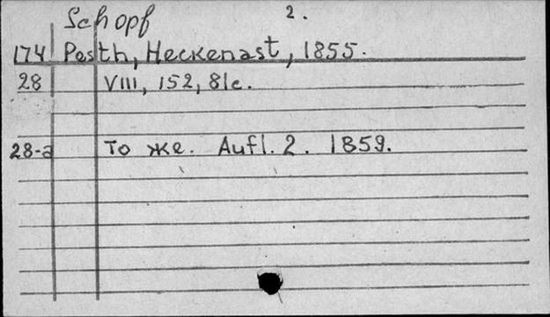 Schopf 2.
174 Pesth, Heckenast, 1855.
28 VIII, 152, 81c.
28-a То же. Aufl. 2. 1859.